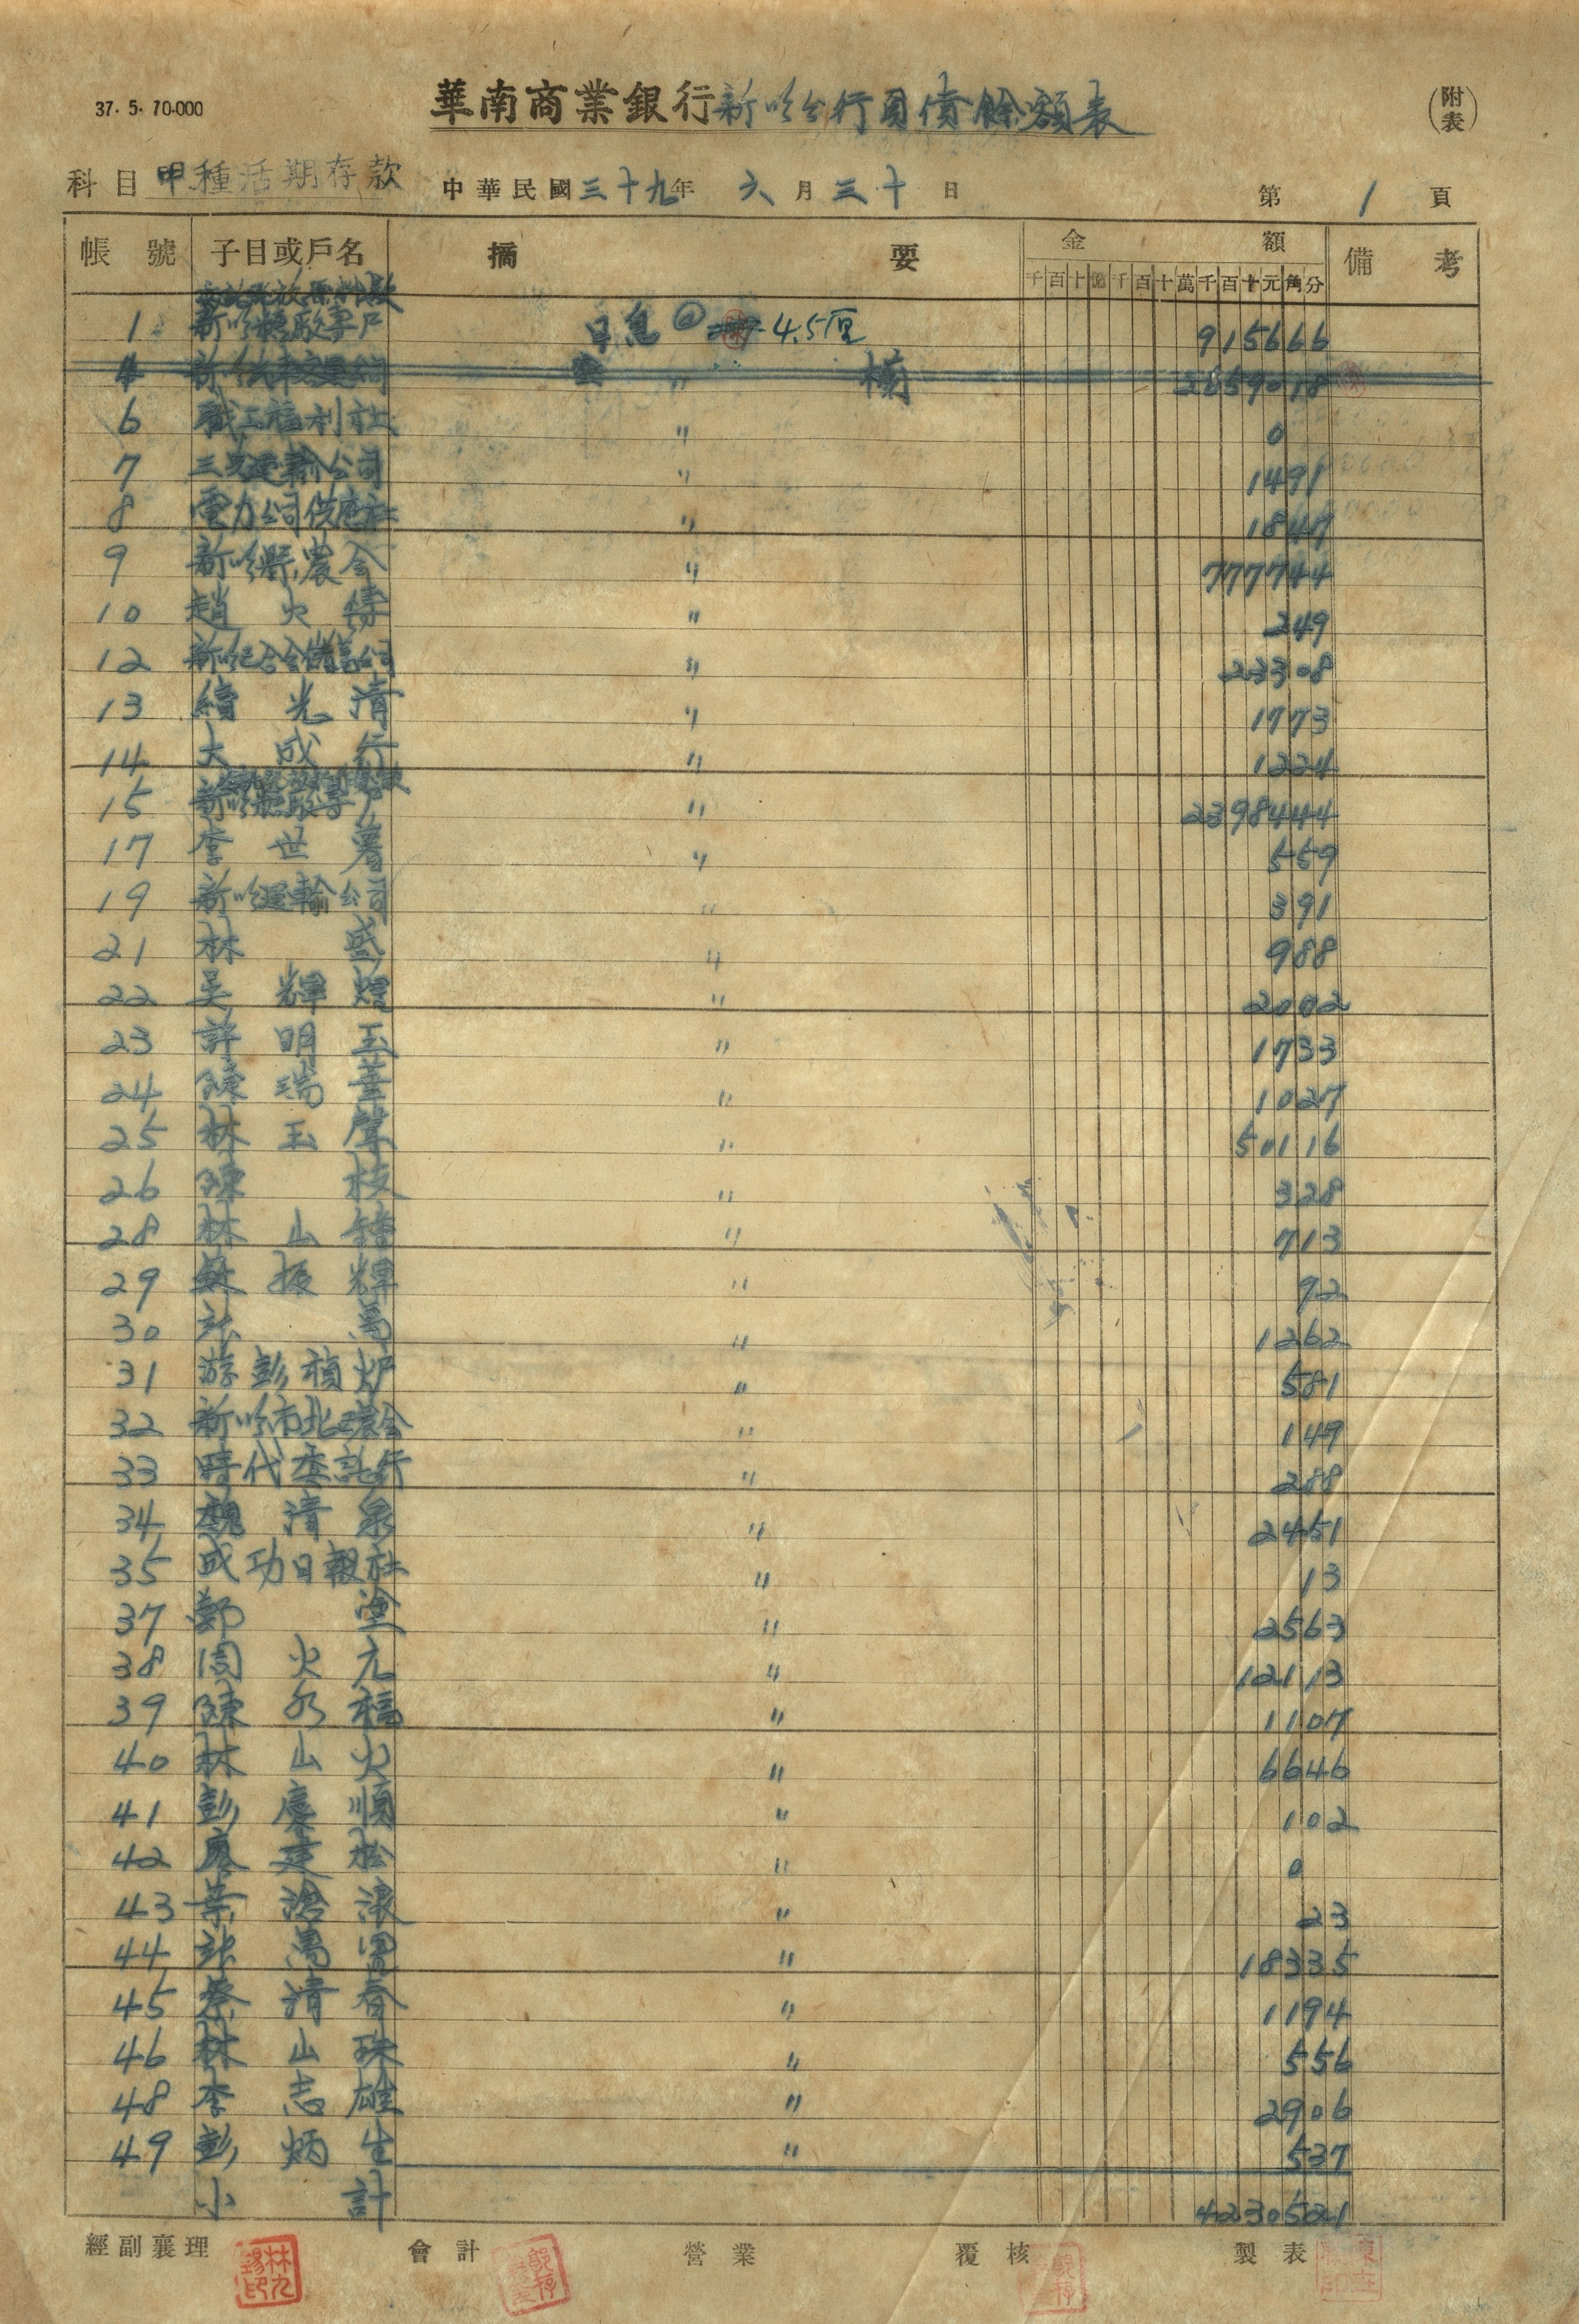 37.5.70.000
華南商業銀行新竹分行負債餘額表
(附表)
科目 甲種活期存款
中華民國三十九年 六月三十日
第 1 頁
帳號 子目或戶名 摘要 金額 備考
千百十億千百十萬千百十元角分
1 日息@ 4.5厘 915666
4 〃 2659018
6 職工福利社 〃 0
7 運輸公司 〃 1491
8 電力公司供應社 〃 1847
9 新竹縣農会 〃 777744
10 趙火 〃 249
12 〃 23308
13 光清 〃 1773
14 大成行 〃 1224
15 〃 2398444
17 李世 〃 559
19 新竹運輸公司 〃 391
21 林盛 〃 988
22 吳輝煌 〃 2002
23 許明玉 〃 1733
24 陳瑞華 〃 1027
25 林玉聲 〃 50116
26 陳枝 〃 328
28 林山 〃 713
29 振輝 〃 92
30 張萬 〃 1262
31 游彭楨炉 〃 581
32 新竹市北區農会 〃 149
33 時代委託行 〃 288
34 魏清泉 〃 2451
35 成功日報社 〃 13
37 鄭塗 〃 2563
38 周火九 〃 12113
39 陳水福 〃 1107
40 林山火 〃 6646
41 彭慶順 〃 102
42 廖建松 〃 0
43 葉滄浪 〃 23
44 張萬 〃 18335
45 蔡清春 〃 1194
46 林山珠 〃 556
48 李志雄 〃 2906
49 彭炳生 〃 537
小計 4230521
經副襄理 會計 營業 覆核 製表